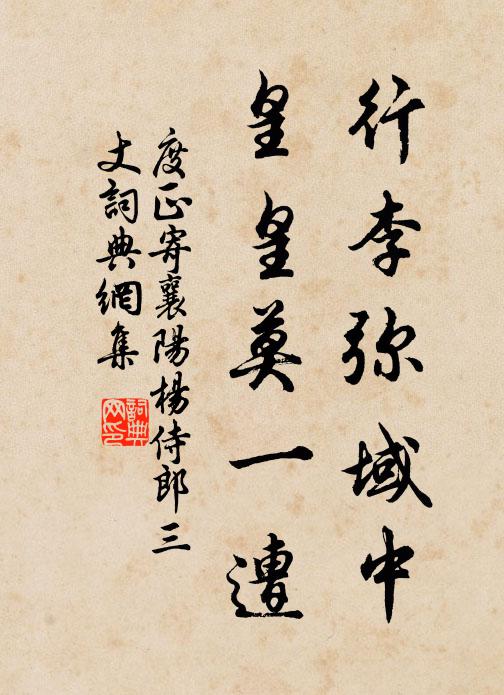 行李弥域中
皇皇莫一遭
度正寄襄陽楊侍郎三
丈詞典網集
詞典
网印